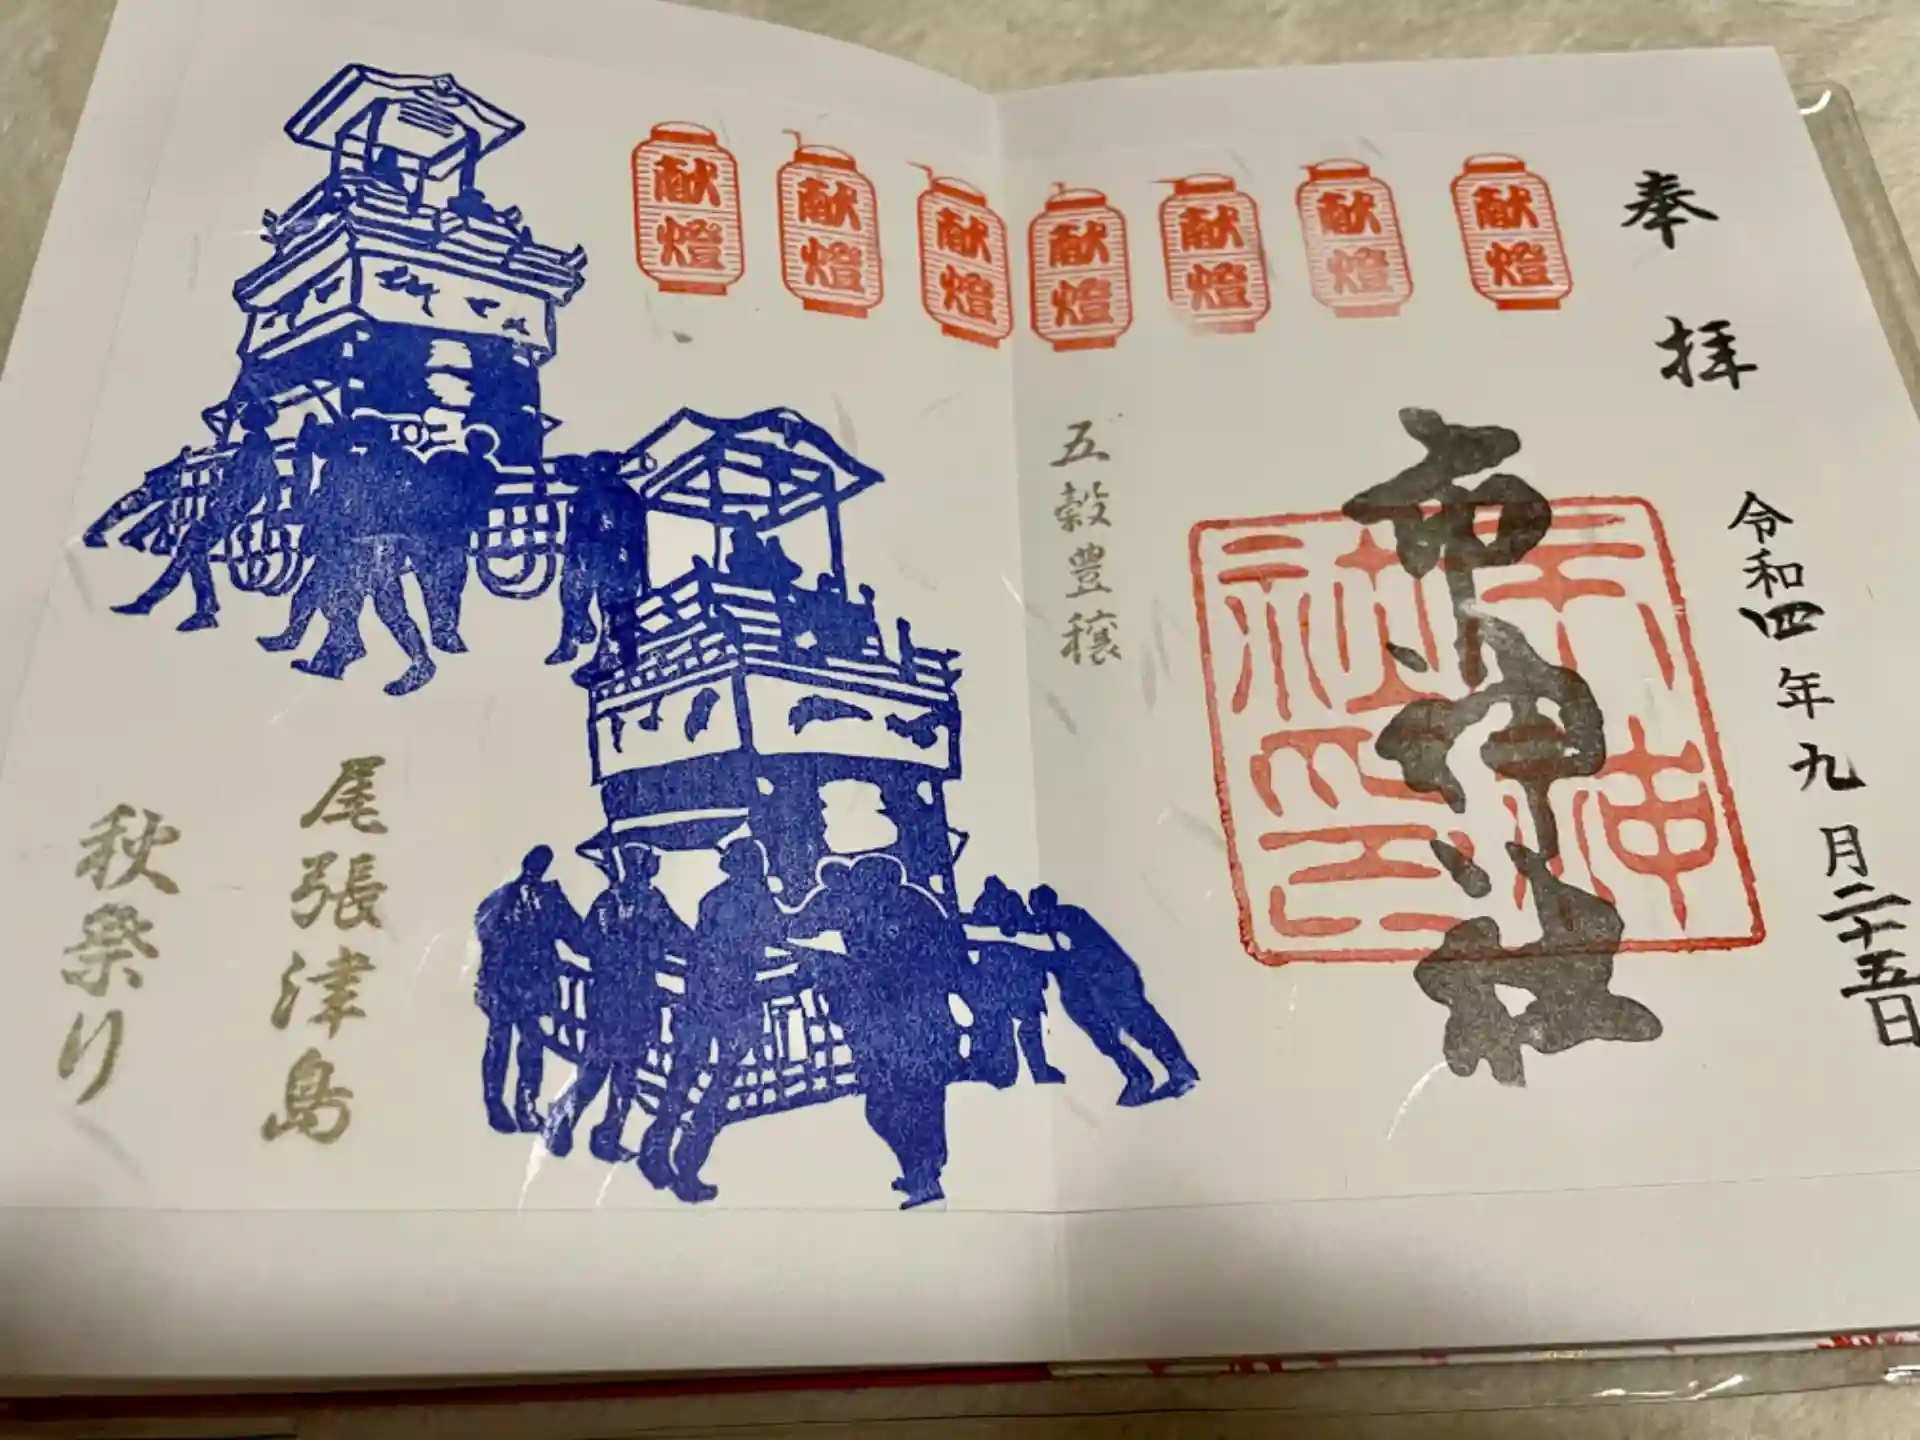 奉拝
令和四年九月二十五日
市神社
五穀豊穣
献燈
献燈
献燈
献燈
献燈
献燈
献燈
尾張津島
秋祭り